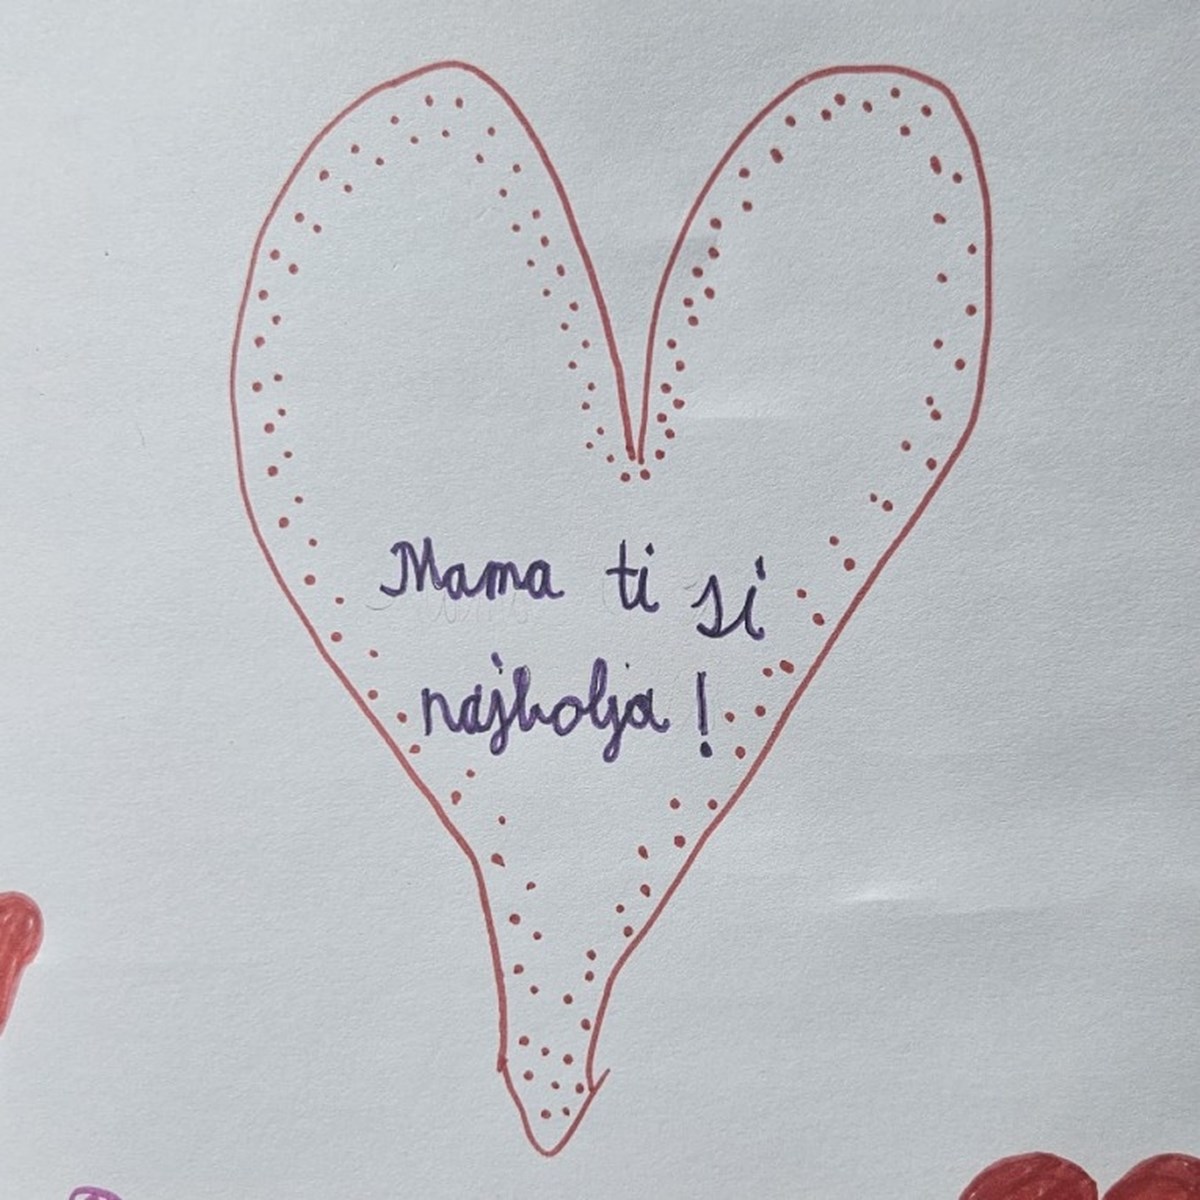 Mama ti si
najbolja!